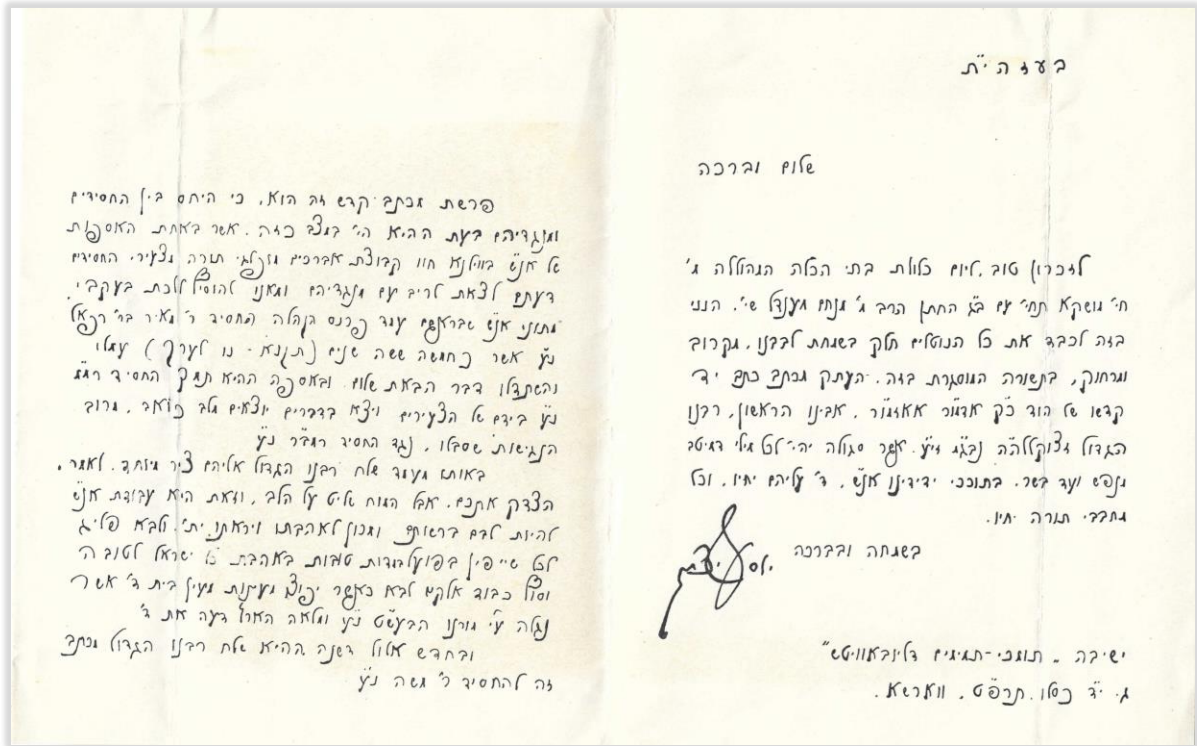 בעזהי"ת
שלום וברכה
לזכרון טוב, ליום כלולת בתי הכלה המהוללה מ'
חי' מושקא תחי' עם ב"ג החתן הרב מ' מנחם מענדל שי', הנני
בזה לכבד את כל הנוטלים חלק בשמחת לבבנו, מקרוב
ומרחוק, בתשורה המוסגרת בזה. העתק מכתב כתב יד
קדשו של הוד כ"ק אדמו"ר אאזמו"ר, אבינו הראשון, רבנו
הגדול זצוקללה"ה נבג"מ זי"ע. אשר סגולה יהי' לכל מילי דמיטב
מנפש ועד בשר. בתוככי ידידינו אנ"ש, ד' עליהם יחיו, וכל
מחבבי תורה יחיו.
בשמחה ובברכה
יוסף יצחק
ישיבה "תומכי-תמימים דליובאוויטש"
ג. י"ד כסלו, תרפ"ט, ווארשא.
פרשת מכתב קדש זה הוא, כי היחס בין החסידים
ומנגדיהם בעת ההיא הי' במצב כזה, אשר באחת האספות
של אנ"ש בווילנא חוו קבוצת אברכים מופלגי תורה מצעירי החסידים
דעתם לצאת לריב עם מנגדיהם ומאנו להוסיף ללכת בעקבי
מתוני אנ"ש שבראשם עמד פרנס הקהלה החסיד ר' מאיר בר' רפאל
נ"ע אשר כחמשה ששה שנים (תקנ"א - נו לערך) עמלו
והשתדלו דבר הבאת שלום. ובאספה ההיא תמך החסיד רמ"מ
נ"ע בידם של הצעירים ויצא בדברים יוצאים מלב כואב, מרוב
הנגישות שסבלו, נגד החסיד רמב"ר נ"ע
באותו מעמד שלח רבנו הגדול אליהם ציר מיוחד, לאמר.
הצדק אתכם. אבל המוח שליט על הלב, וזאת היא עבודת אנ"ש
להיות לבם ברשותם ומכוון לאהבתו ויראתו ית', ולבא פליג
לכל שייפין בפועל במדות טובות באהבת כל ישראל לטוב ה'
וסוף כבוד אלקים לבא כאשר יפוצו מעינות מעין בית ד' אשר
נגלה ע"י מורנו הבעש"ט נ"ע ומלאה הארץ דעה את ד'
ובחדש אלול דשנה ההיא שלח רבנו הגדול מכתב
זה להחסיד ר' משה נ"ע